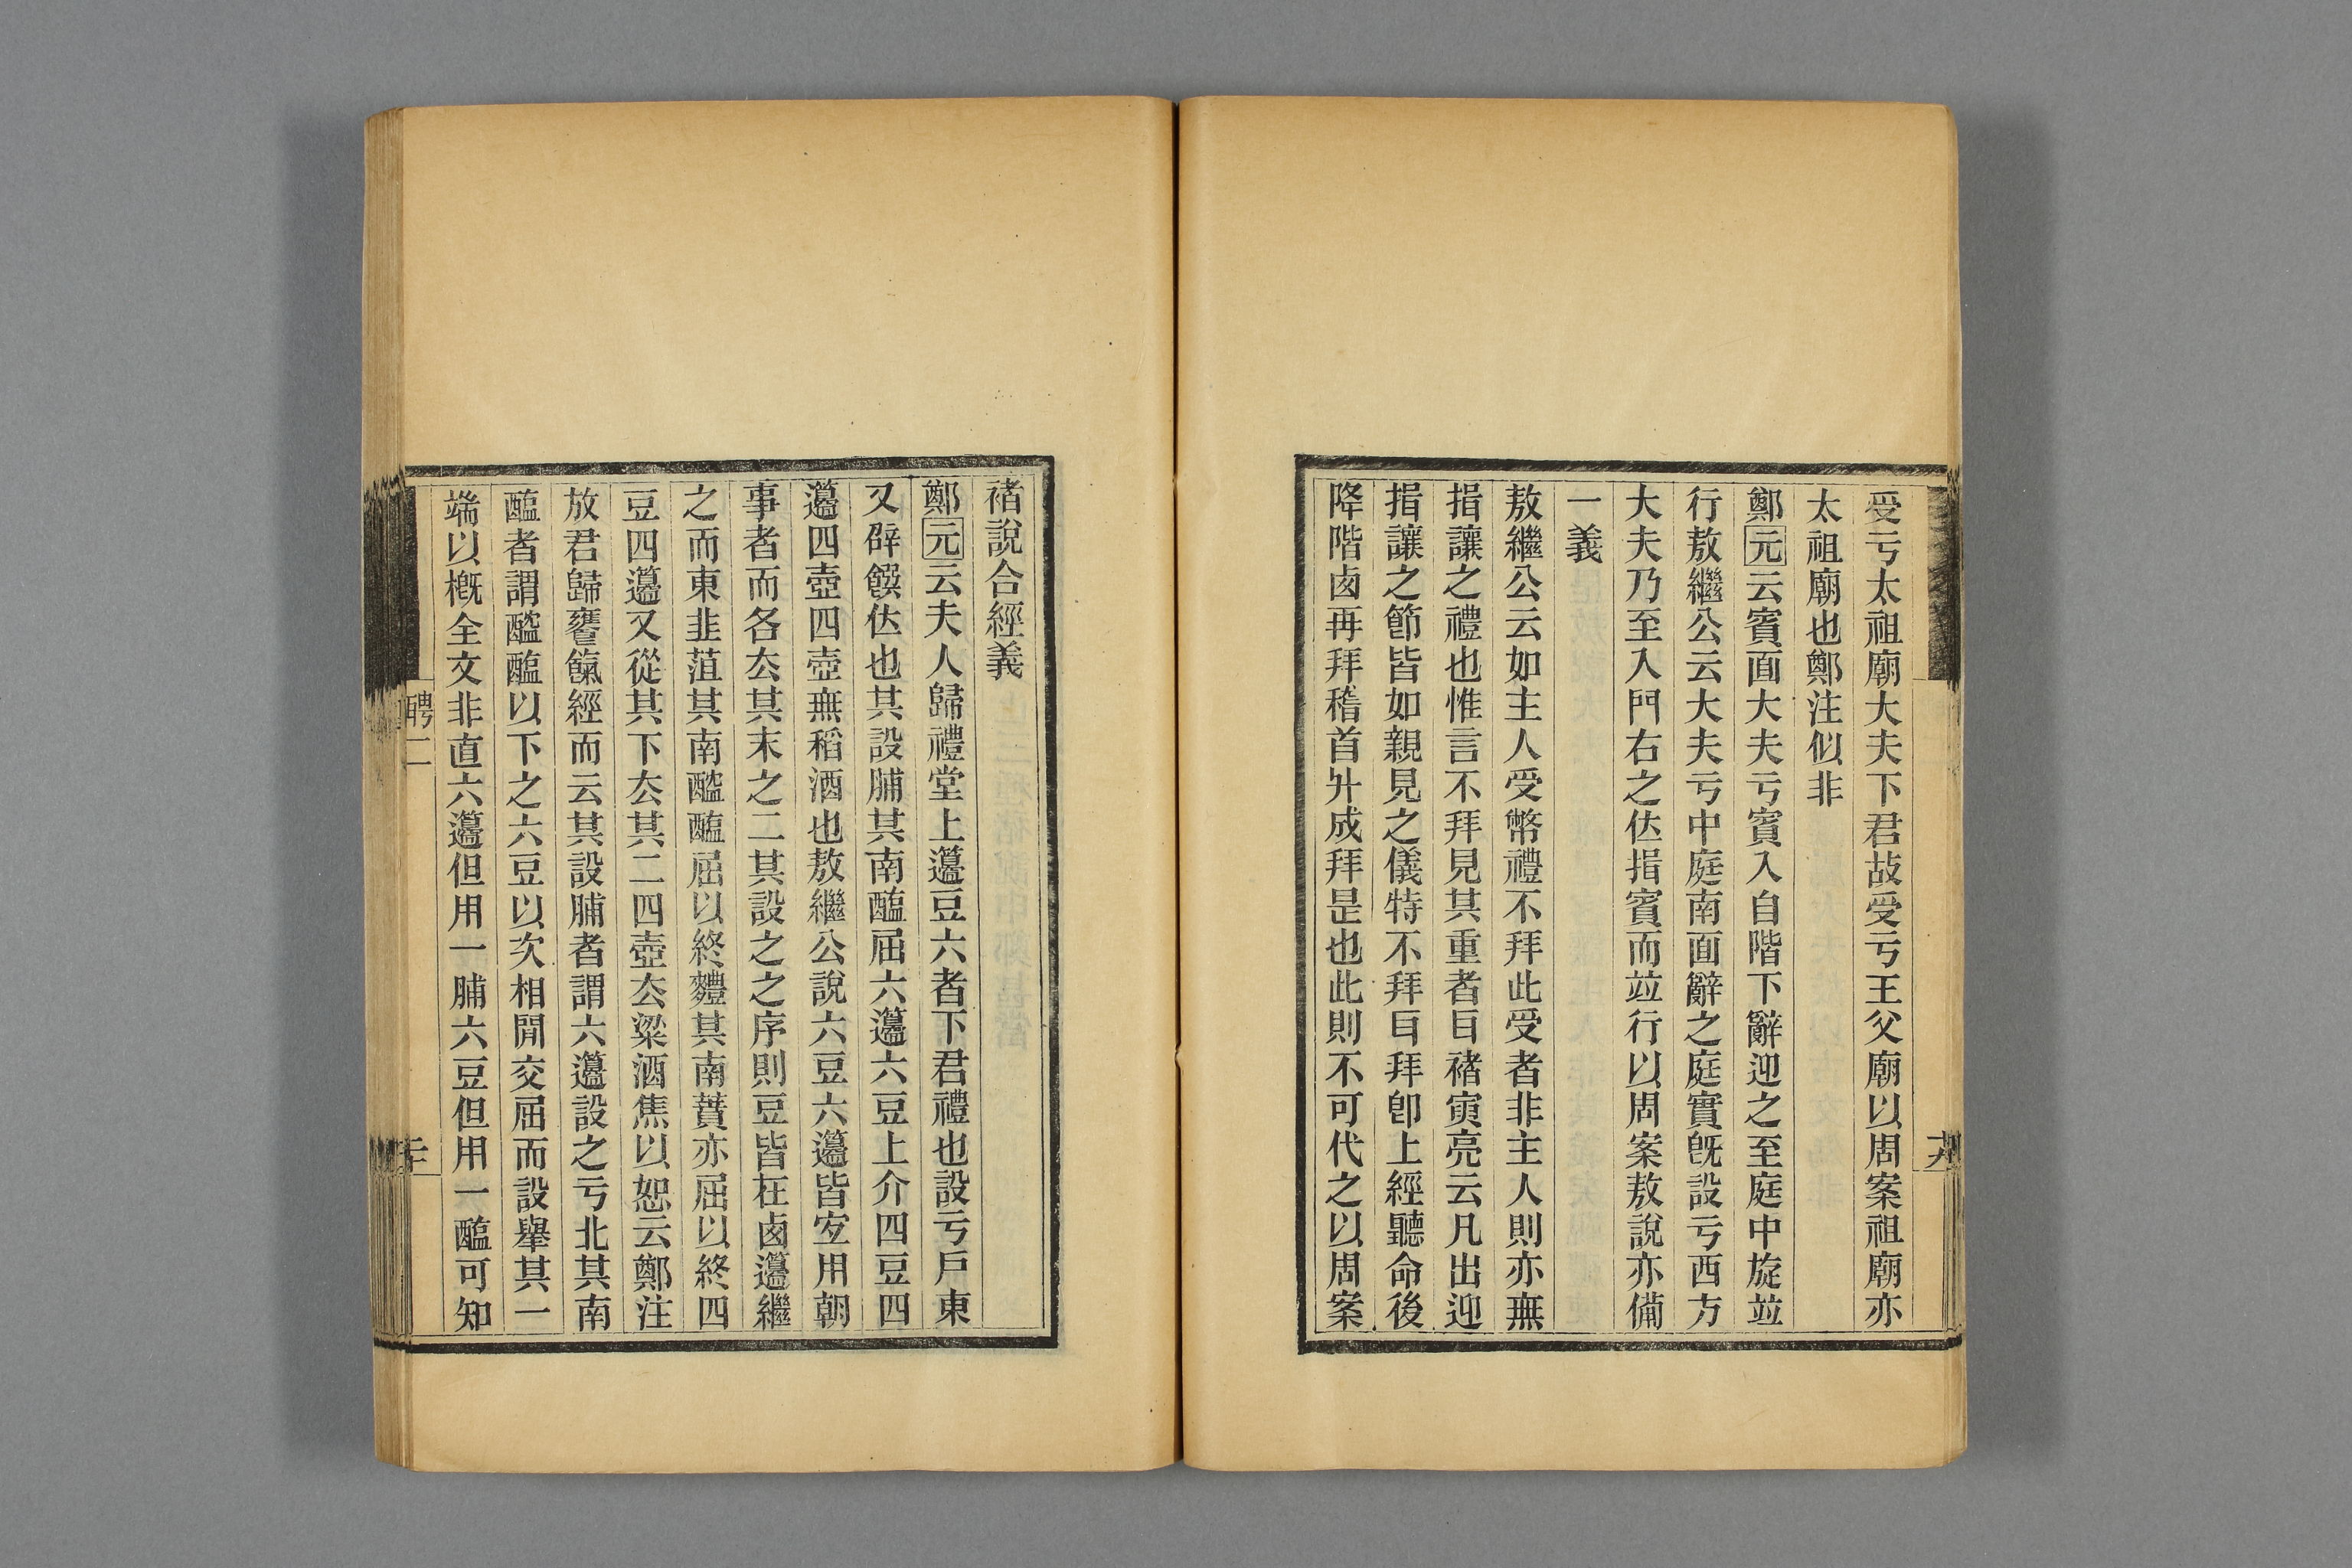 受亏太祖廟大夫下君故受亏王父廟以周案祖廟亦
太祖廟也鄭注似非
鄭元云賓面大夫亏賓入自階下辭迎之至庭中旋竝
行敖繼公云大夫亏中庭南面辭之庭實旣設亏西方
大夫乃至入門右之位揖賓而竝行以周案敖說亦備
一義
敖繼公云如主人受幣禮不拜此受者非主人則亦無
揖讓之禮也惟言不拜見其重者目褚寅亮云凡出迎
揖讓之節皆如親見之儀特不拜目拜卽上經聽命後
降階卤再拜稽首升成拜是也此則不可代之以周案
褚說合經義
鄭元云夫人歸禮堂上籩豆六者下君禮也設亏戶東
又辟饌位也其設脯其南醢屈六籩六豆上介四豆四
籩四壺四壺無稻酒也敖繼公說六豆六籩皆宐用朝
事者而各厺其末之二其設之之序則豆皆在卤籩繼
之而東韭菹其南醓醢屈以終麷其南蕡亦屈以終四
豆四籩又從其下厺其二四壺厺粱酒焦以恕云鄭注
放君歸饔餼經而云其設脯者謂六籩設之亏北其南
醢者謂醓醢以下之六豆以次相閒交屈而設舉其一
端以槪全文非直六籩但用一脯六豆但用一醢可知
聘二